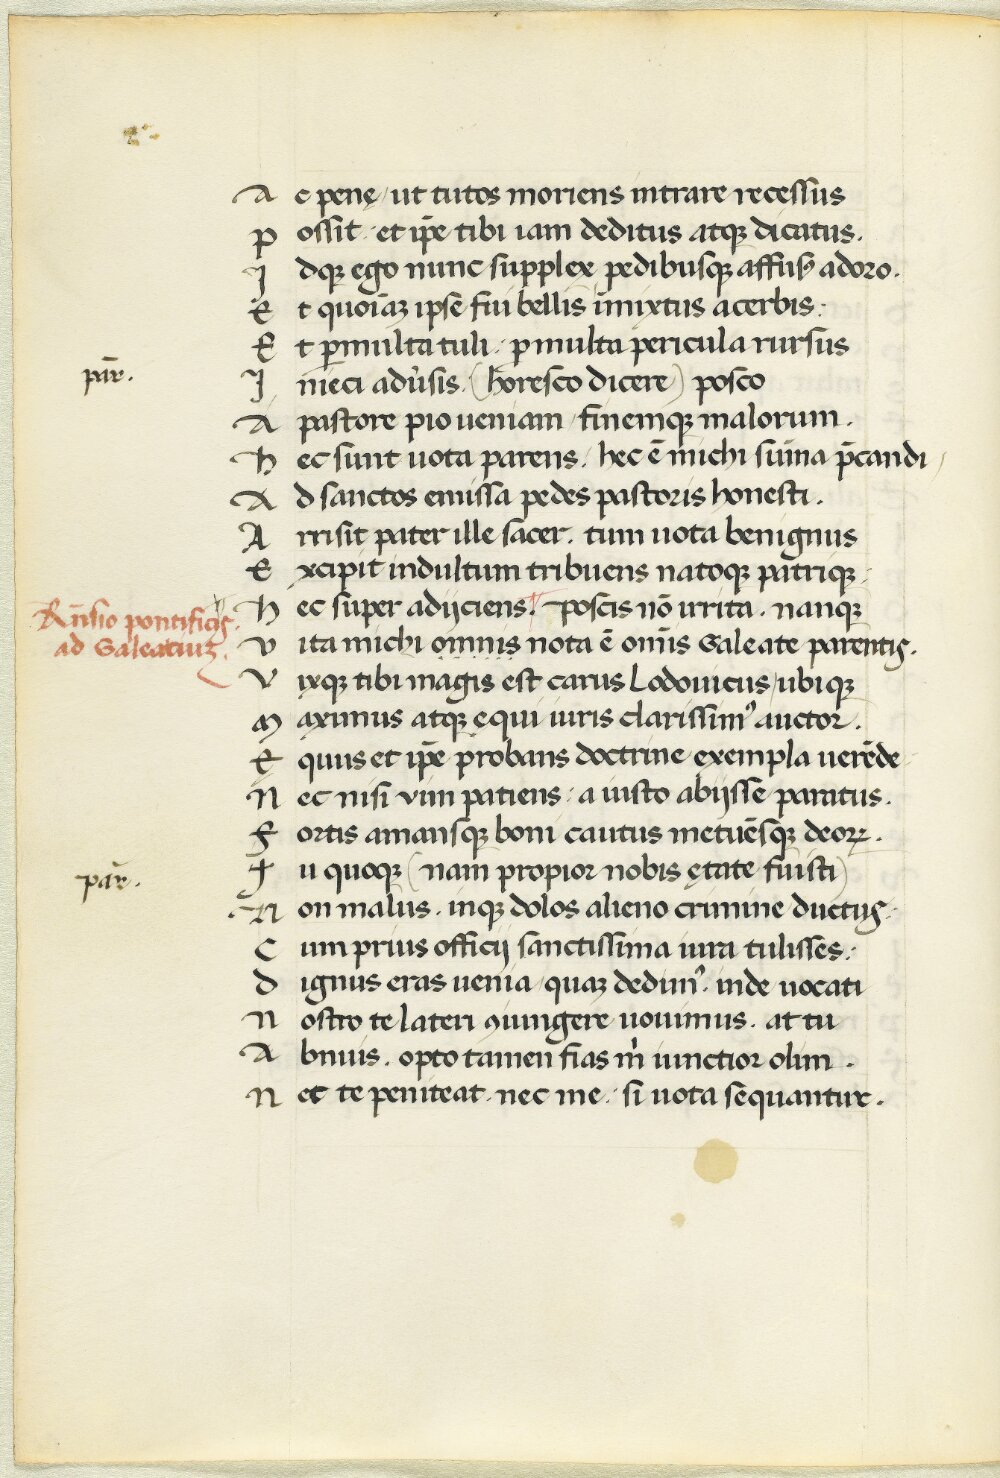 A c penę / ut tutos moriens intrare recessus
p ossit · et ip̄e tibi iam deditus atqꝫ dicatus.
I dqꝫ ego nunc supplex pedibusqꝫ affusꝰ adoro.
E t quoīaꝫ ipse fui bellis īmixtus acerbis:
E t ꝑmulta tuli · ꝑmulta pericula rursus
par̄.
I nieci adu̓sis. (horesco dicere) posco
A pastore pio ueniam / finemqꝫ malorum.
h ec sunt uota parens. hec ē michi sum̄a p̄candi /
A d sanctos emissa pedes pastoris honesti.
A rrisit pater ille sacer. tum uota benignus
E xcipit indultum tribuens natoqꝫ patriqꝫ:
Rn̄sio pontificis
h ec super adijciens. poscis nō irrita. nanqꝫ
ad Galeatiuꝫ.
v ita michi omnis nota ē om̄is Galeate parentis.
v ixqꝫ tibi magis est carus Lodouicus / ubiqꝫ
m aximus atqꝫ ęqui iuris clarissimꝰ auctor.
E quus et ip̄e probans doctrine exempla uerēde
N ec nisi vim patiens: a iusto abijsse paratus.
f ortis amansqꝫ boni cautus metuēsqꝫ deoꝝ.
par̄.
T u quoqꝫ (nam propior nobis ętate fuisti)
N on malus. inqꝫ dolos alieno crimine ductus.
C um prius officij sanctissima iura tulisses:
d ignus eras uenia / quaꝫ dedimꝰ. inde uocati
n ostro te lateri ꝯiungere uouimus. at tu
A bnuis. opto tamen fias m̓ iunctior olim.
n et te peniteat · nec me · si uota sequantur.